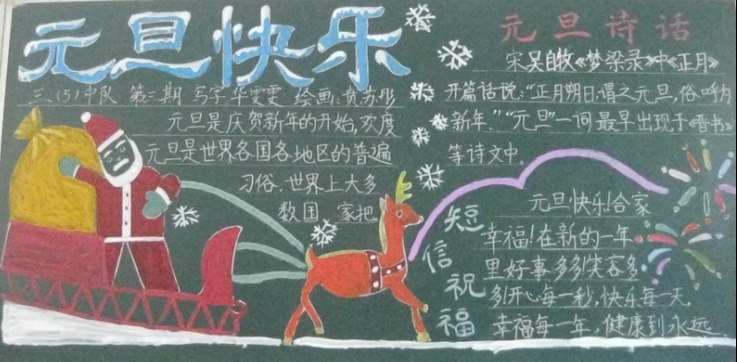 元旦快乐
三、(5)中队 第三期 写字:华雯雯 绘画:贺苏彤
元旦是庆贺新年的开始,欢度
元旦是世界各国各地区的普遍
习俗.世界上大多
数国家把
元旦诗话
宋吴自牧《梦梁录》中《正月》
开篇话说:“正月朔日,谓之元旦,俗呼为
新年.”“元旦”一词最早出现于《晋书》
等诗文中.
短信祝福
元旦快乐!合家
幸福!在新的一年
里好事多多!笑容多
多!开心每一秒,快乐每一天
幸福每一年,健康到永远